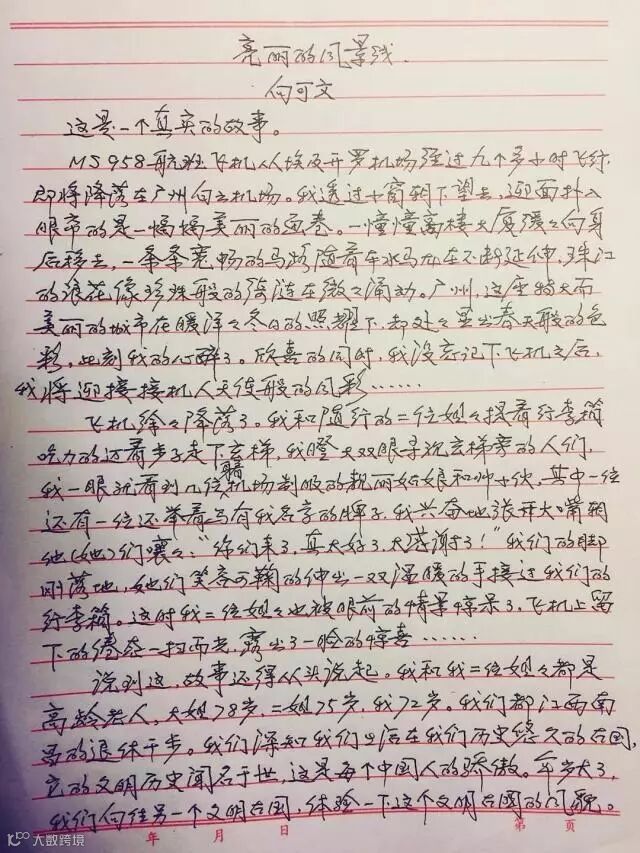 亮丽的风景线.
向可文
这是一个真实的故事。
MS958航班飞机从埃及开罗机场经过九个多小时飞行,
即将降落在广州白云机场。我透过小窗朝下望去,迎面扑入
眼帘的是一幅幅美丽的画卷。一幢幢高楼大厦缓々向身
后移去,一条条宽畅的马路随着车水马龙在不断延伸,珠江
的浪花像珍珠般的涟在微々涌动。广州,这座特大而
美丽的城市在暖洋々冬日的照耀下,却处々呈出春天般的色
彩,此刻我的心醉了。欣喜的同时,我没忘记下飞机之后,
我将迎接接机人天使般的风彩……
飞机徐々降落了。我和随行的二位姐々提着行李箱
吃力的迈着步子走下玄梯,我瞪大双眼寻视玄梯旁的人们,
我一眼就看到几位机场制服的靓丽姑娘和帅小伙,其中一位
还有一位还举着写有我名字的牌子,我兴奋地张开大嘴朝
他(她)们嚷々:“你们来了,真太好了,太感谢了!”我们的脚
刚落地,她们笑容可鞠的伸出一双温暖的手接过我们的
行李箱。这时我二位姐々也被眼前的情景惊呆了,飞机上留
下的倦态一扫而光,露出了一脸的惊喜……
说到这,故事还得从头说起。我和我二位姐々都是
高龄老人,大姐78岁,二姐75岁,我72岁。我们都江西南
昌的退休干部。我们深知我们生活在我们历史悠久的古国,
它的文明历史闻名于世,这是每个中国人的骄傲。年岁大了,
我们向往另一个文明古国,体验一下这个文明古国的风貌。
年 月 日 第 页
大数跨境